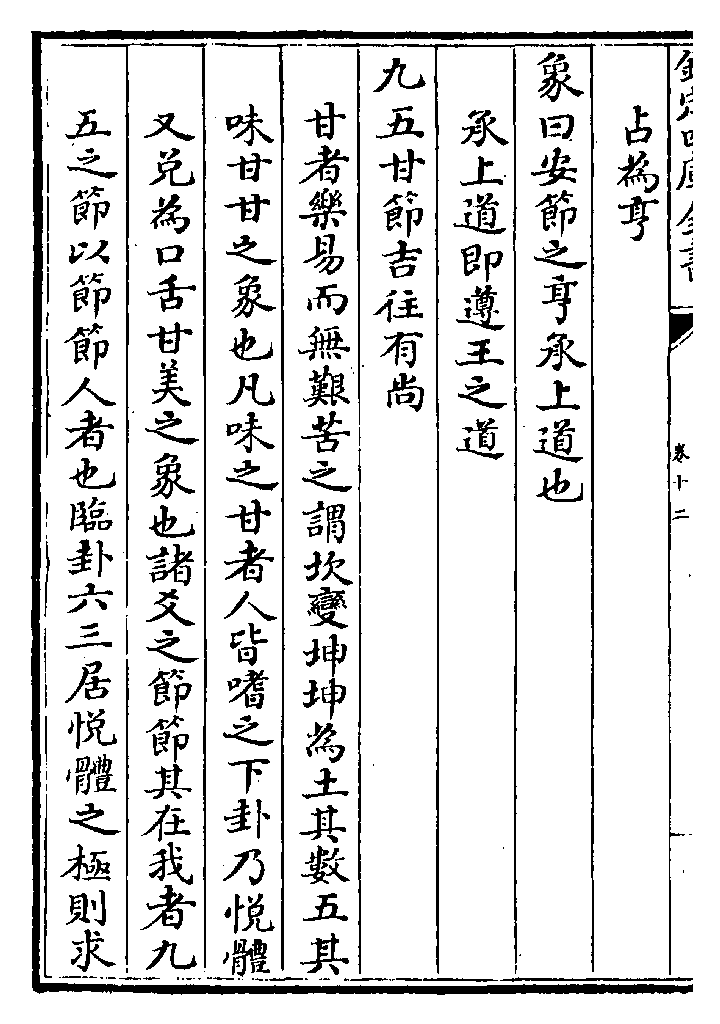 欽定四庫全書
卷十二
占為亨
象曰安節之亨承上道也
承上道即遵王之道
九五甘節吉往有尚
甘者樂易而無艱苦之謂坎變坤坤為土其數五其
味甘甘之象也凡味之甘者人皆嗜之下卦乃悅體
又兌為口舌甘美之象也諸爻之節節其在我者九
五之節以節節人者也臨卦六三居悅體之極則求